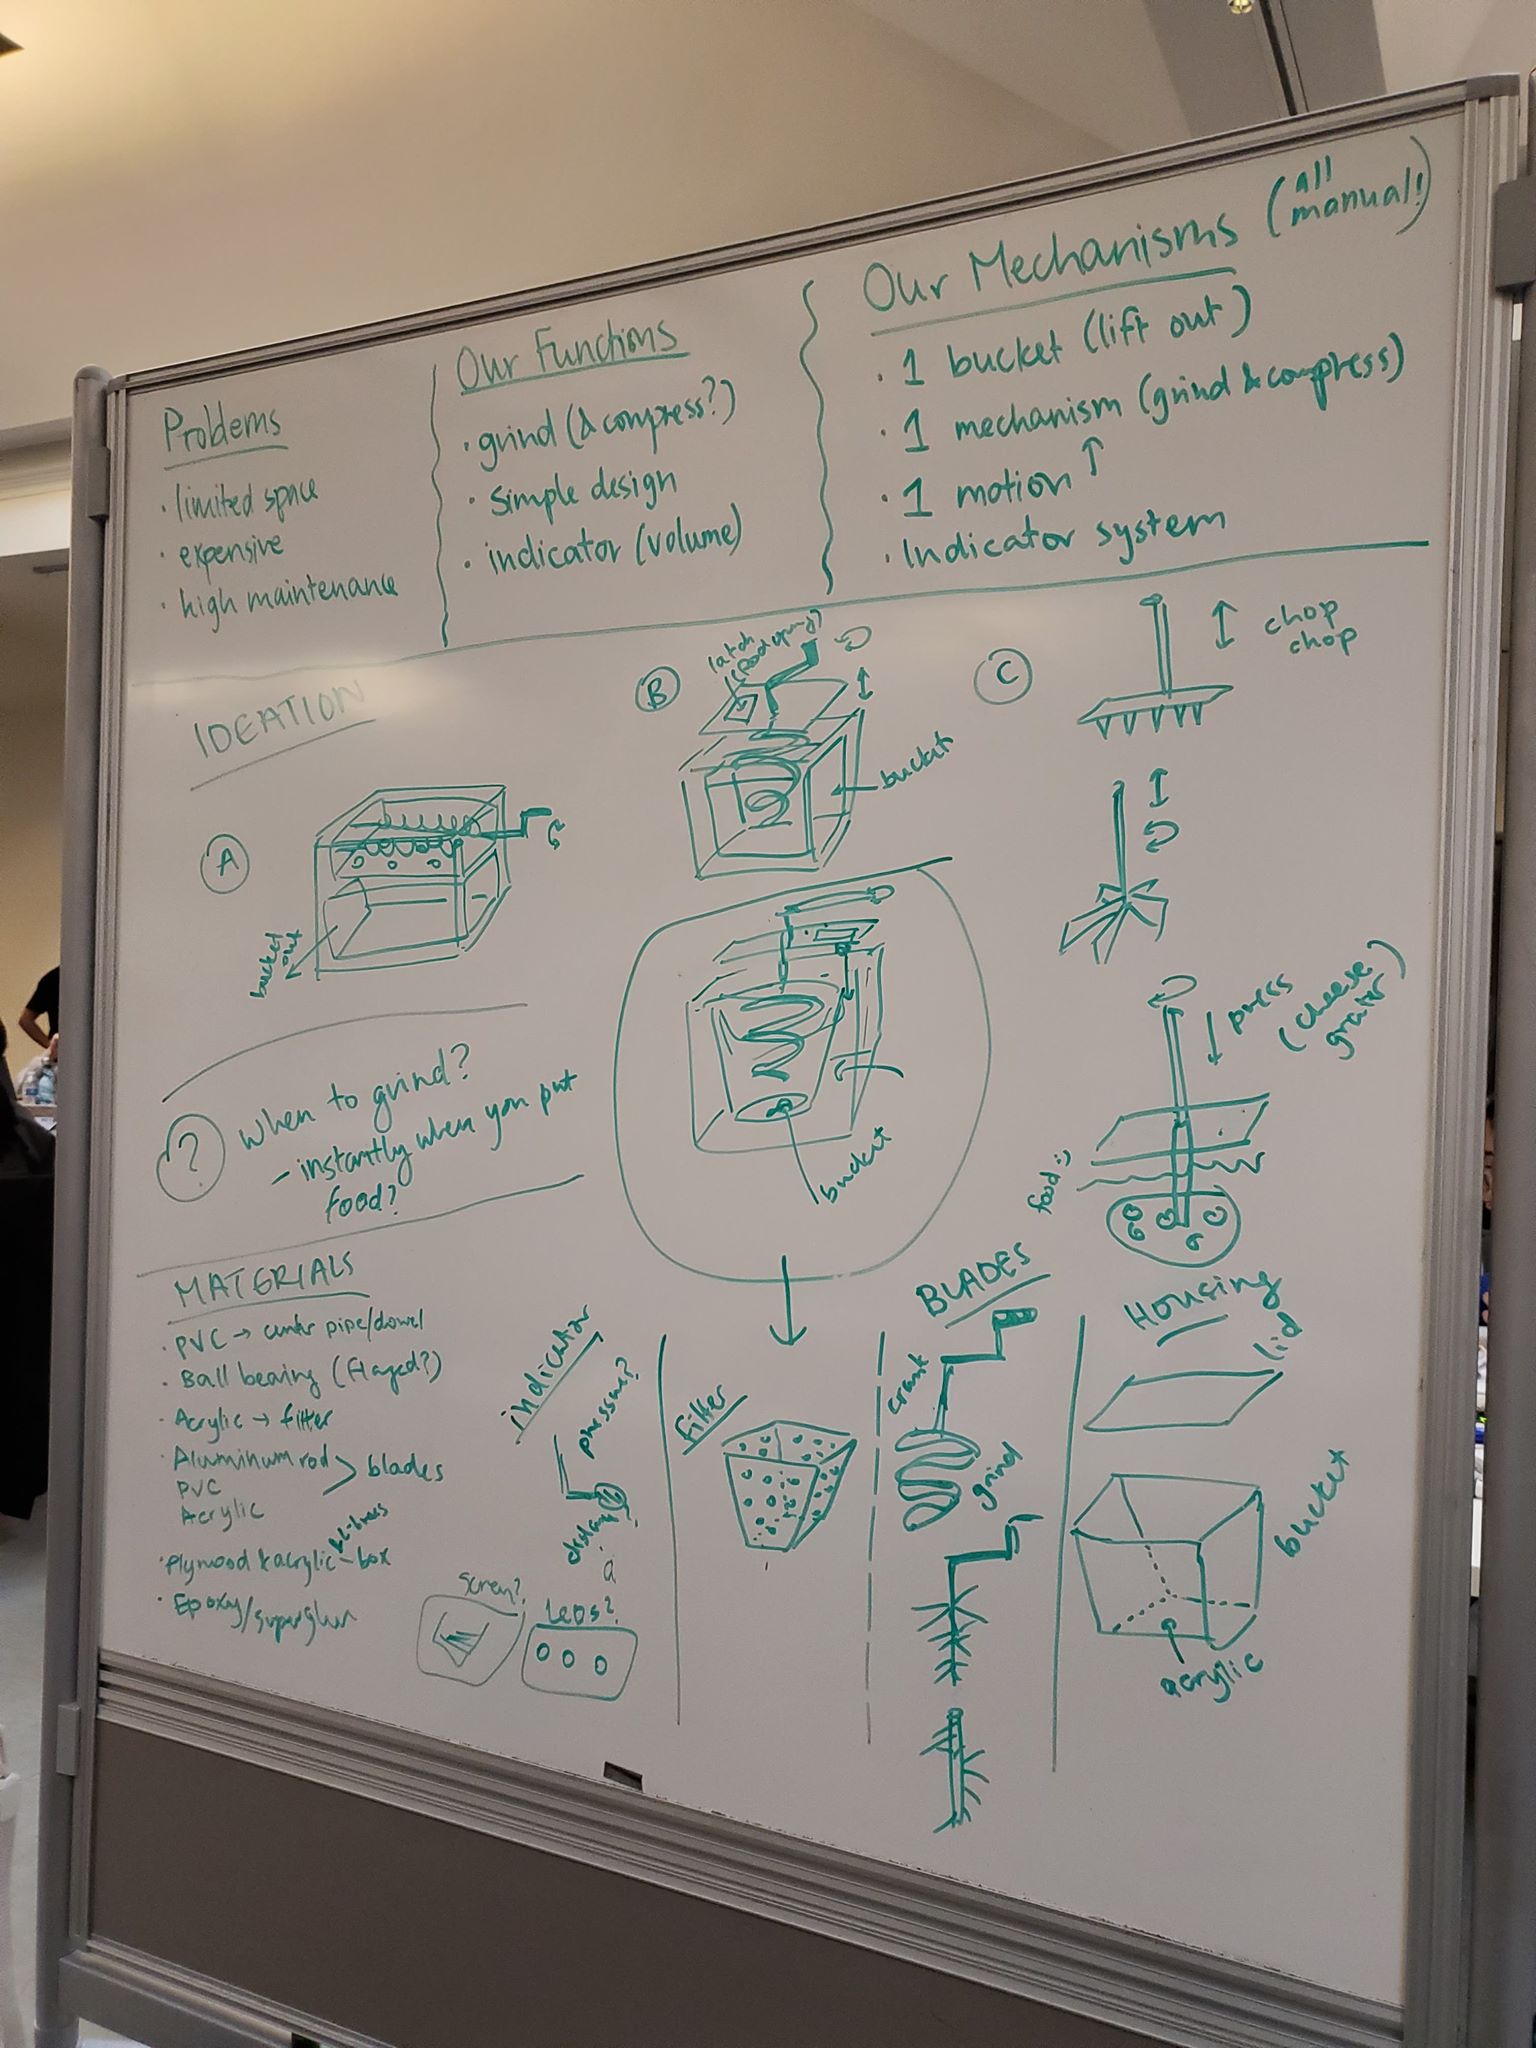 Problems
· limited space
· expensive
· high maintenance
Our Functions
· grind (& compress?)
· Simple design
· indicator (volume)
Our Mechanisms (all manual!)
· 1 bucket (lift out)
· 1 mechanism (grind & compress)
· 1 motion
· Indicator system
IDEATION
A
bucket out
B
latch
bucket
C
chop
chop
press
(cheese
grater)
food :)
bucket
? When to grind?
- instantly when you put
food?
MATERIALS
· PVC → center pipe/dowel
· Ball bearing (flanged?)
· Acrylic → filter
· Aluminum rod
PVC
Acrylic
> blades
· Plywood & acrylic - box
· Epoxy/superglue
indicator
pressure?
screen?
LEDs?
Filter
BLADES
crank
grind
Housing
lid
bucket
acrylic